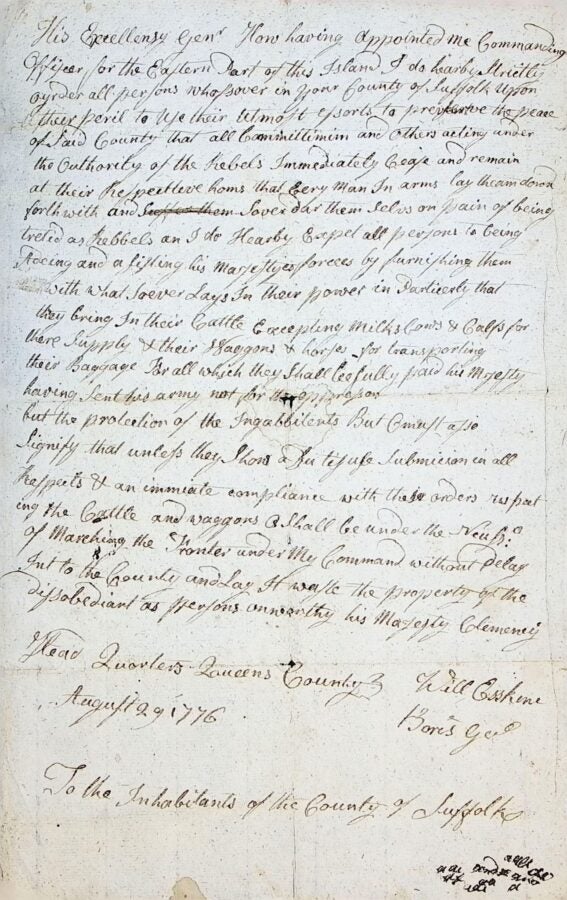 His Excellensy Genr How having Appointed me Commanding
Officer for the Eastern Part of this Island I do hearby Strictly
oyrder all persons whossover in your County of Suffolk Upon
their peril to Use their utmost efforts to preserve the peace
of Said County that all Committimin and Others acting under
the Authority of the Rebels Immediately Cease and remain
at their Respecttieve homs that Every Man In arms lay theam down
forthwith and Sover dar them Selvs on pain of being
treted as Rebbels an I do Hearby Expet all persons to being
Adeing and assisting his Majestyes forces by furnishing them
with what soever Lays In their power in Particerly that
they bring In their Cattle Excepting Milks Cows & Calfs for
there Supply & their Waggons & horses for transporting
their Baggage For all which they Shall be fully paid his Majesty
having Sent his army not for the oppreson
but the protection of the Ingabbitents But I must also
Signify that unless they Show a Dutifule Submicion in all
Respects & an immiate compliance with these orders respat
ing the Cattle and waggons I Shall be under the
of Marching the under My Command without Delay
Int to the County and Lay It waste the property of the
dissobediant as persons unworthy his Majesty Clemency
Head Quorters Queens County
Will Esskine
August 29 1776
To the Inhabitants of the County of Suffolk